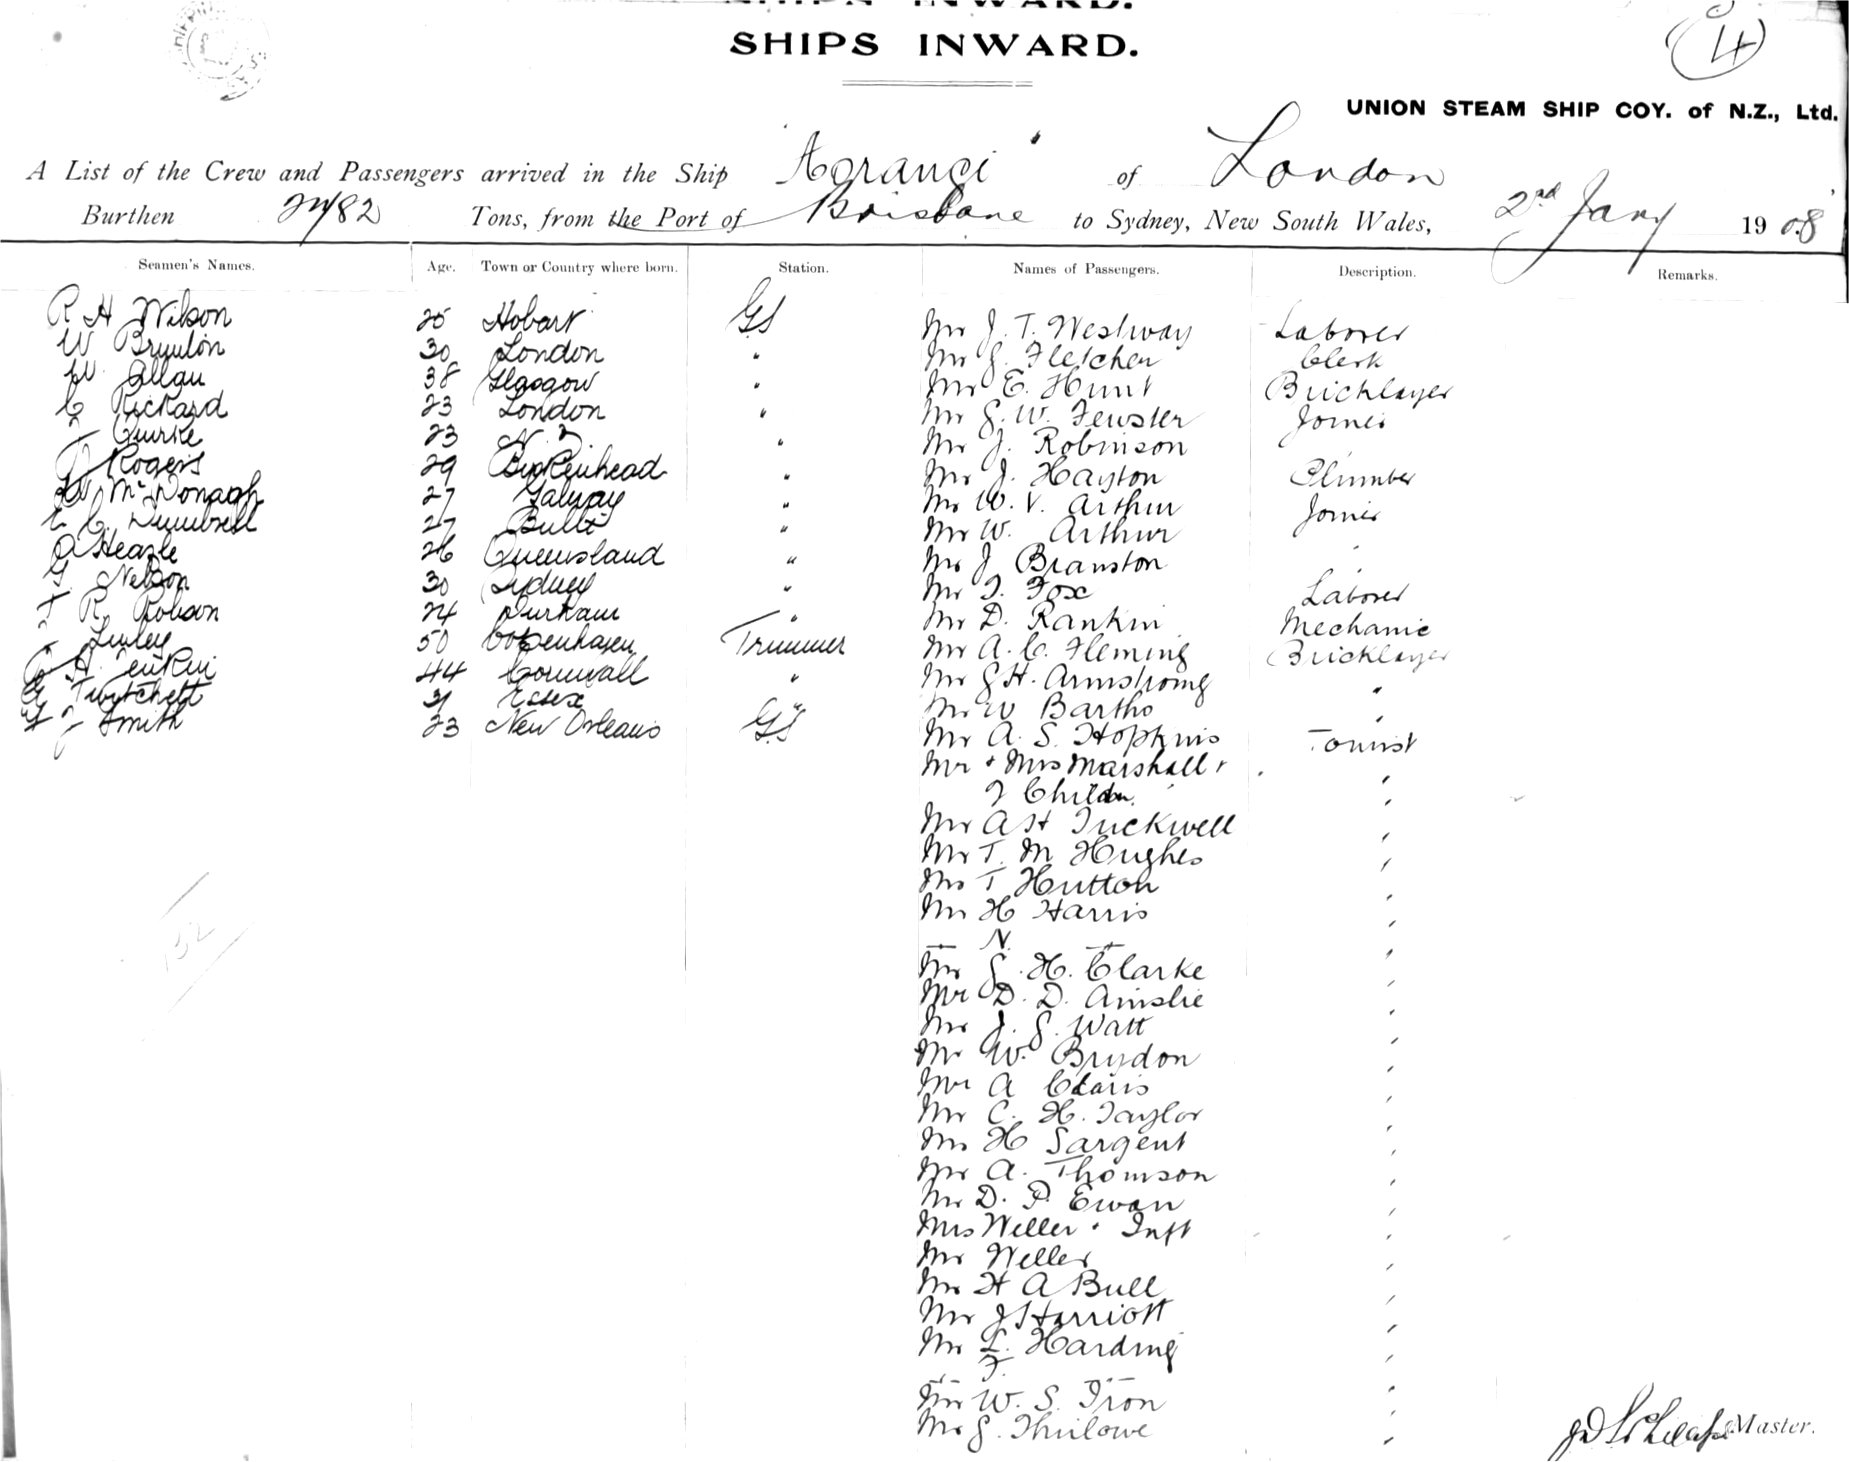 SHIPS INWARD.
4
UNION STEAM SHIP COY. of N.Z., Ltd.
A List of the Crew and Passengers arrived in the Ship "Aorangi" of London
Burthen 2782 Tons, from the Port of Brisbane to Sydney, New South Wales, 2nd Jany 1908
Seamen's Names. Age. Town or Country where born. Station. Names of Passengers. Description. Remarks.
R H Wilson 25 Hobart GS
W 30 London "
W. Allan 38 Glasgow "
C Rickard 23 London "
Quirke 23 N. Z. "
Rogers 29 Birkenhead "
McDonagh 27 Galway "
E C. Dumbrell 27 Bulli "
A Heazle 26 Queensland "
Nelson 30 Sydney "
R. Robson 24 Durham "
50 Copenhagen Trimmer
H. Jenkin 44 Cornwall "
Twitchett 31 Essex "
Smith 23 New Orleans GS
Mr J. T. Westway Laborer
Mr G. Fletcher Clerk
Mr E. Hunt Bricklayer
Mr G. W. Fewster Joiner
Mr J. Robinson
Mr J. Hayton Plumber
Mr W. V. Arthur Joiner
Mr W. Arthur "
Mr J Branston
Mr T. Fox Laborer
Mr D. Rankin Mechanic
Mr A. C. Fleming Bricklayer
Mr G H. Armstrong "
Mr W Bartho "
Mr A. S. Hopkins Tourist
Mr + Mrs Marshall + "
2 Childn. "
Mr A H Tuckwell "
Mr T. M Hughes "
Mr T Hutton "
Mr H Harris "
— N. — "
Mr G. H. Clarke "
Mr D. D. Ainslie "
Mr J. G. Watt "
Mr W. Brydon "
Mr A Claris "
Mr C. H. Taylor "
Mr H Sargent "
Mr A. Thomson "
Mr D. P. Ewan "
Mrs Weller + Inft "
Mr Weller "
Mr H A Bull "
Mr J Harriott "
Mr L. Harding "
F.
Mr W. S. Iron "
Mr G. "
Master.